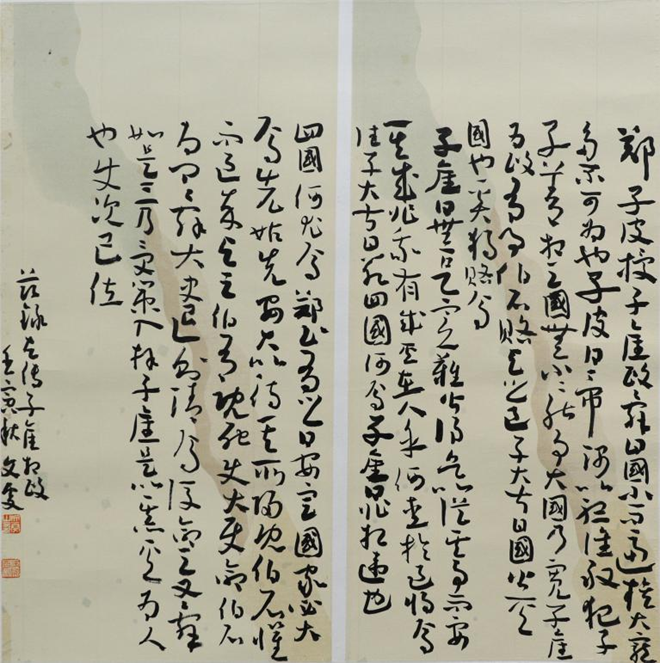 鄭子皮授子產政辭曰國小而逼族大寵
多不可為也子皮曰帥以聽誰敢犯子
子善相之國無小小能事大國乃寬子產
為政有事伯石賂與之邑子大叔曰國皆其
國也奚獨賂焉
子產曰無欲實難皆得其欲以從其事而要
其成非我有成其在人乎何愛於邑將焉
往子大叔曰若四國何焉子產曰非相違也
四國何尤焉鄭書有之曰安定國家必大
焉先姑先安大以待其所歸既伯石懼
而歸邑卒與之伯有既死使大史命伯石
為卿辭大史退則請命焉復命之又辭
如是三乃受策入拜子產是以惡其為人
也使次己位
節錄左傳子產相政
壬寅秋文